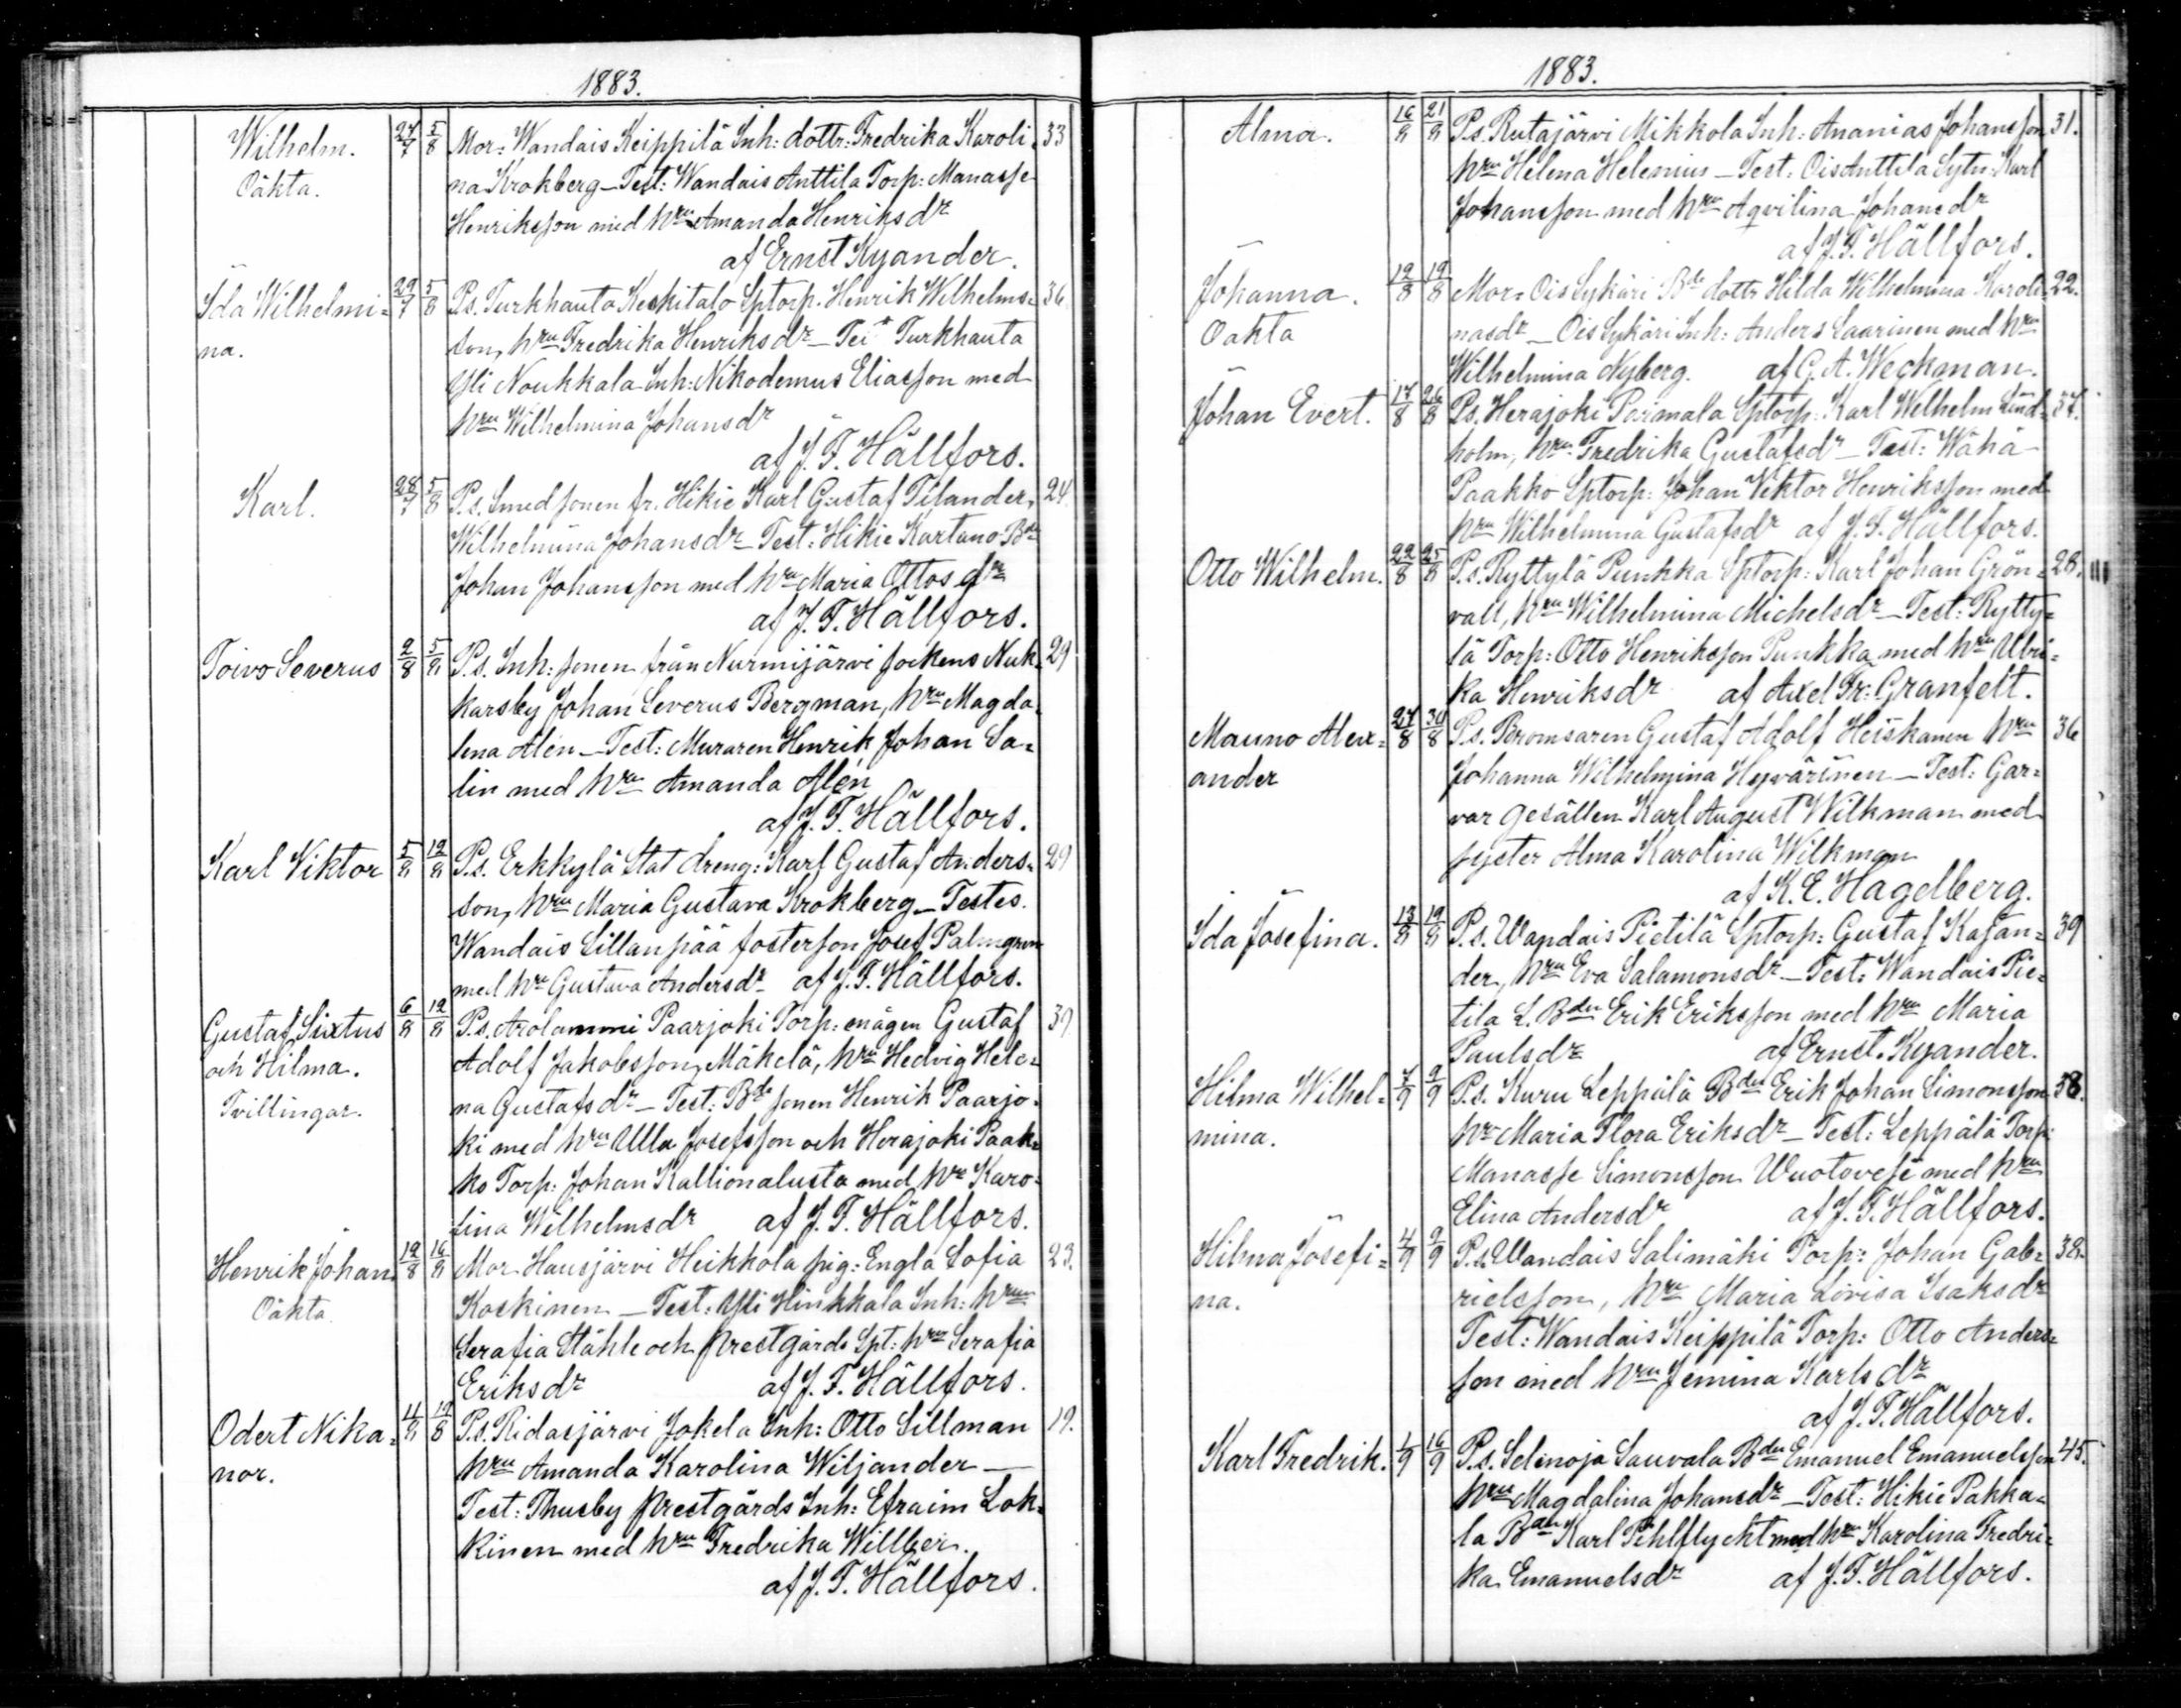 1883.
Wilhelm. 27/7 5/8 Mor: Wandais Keippilä Inh: dottr: Fredrika Karoli- 33
Oäkta. na Krokberg – Test: Wandais Anttila Torp: Manasse
Henriksson med hru Amanda Henriksdr
af Ernst Kyander.
Ida Wilhelmi- 29/7 5/8 P.s. Turkhauta Keskitalo Sptorp. Henrik Wilhelms- 36
na. son, hru Fredrika Henriksdr – Test Turkhauta
Yli Noukkala Inh: Nikodemus Eliasson med
hru Wilhelmina Johansdr
af J. F. Hällfors.
Karl. 28/7 5/8 P.s. Smedsonen fr. Hikie Karl Gustaf Tilander, 24
Wilhelmina Johansdr – Test: Hikie Kartano Bdn
Johan Johansson med hru Maria Ottosdr
af J. F. Hällfors.
Toivo Severus 2/8 5/8 P.s. Inh: sonen från Nurmijärvi sockens Nuk- 29
karsby Johan Severus Bergman, hru Magda-
lena Alén – Test: Muraren Henrik Johan Sa-
lin med hru Amanda Alén
af J. F. Hällfors.
Karl Viktor 5/8 12/8 P.s. Erkkylä Stat dreng: Karl Gustaf Anders- 29
son, hru Maria Gustava Krokberg – Testes.
Wandais Sillanpää fosterson Josef Palmgren
med hru Gustava Andersdr af J. F. Hällfors.
Gustaf Sixtus 6/8 12/8 P.s. Arolammi Paarjoki Torp: mågen Gustaf 39
och Hilma. Adolf Jakobsson Mäkelä, hru Hedvig Hele-
Tvillingar. na Gustafsdr – Test: Bde sonen Henrik Paarjo-
ki med hru Ulla Josefsson och Herajoki Paak-
ko Torp: Johan Kallionalusta med hru Karo-
lina Wilhelmsdr af J. F. Hällfors.
Henrik Johan 12/8 16/8 Mor Hausjärvi Heikkola pig: Engla Sofia 23.
Oäkta. Koskinen – Test: Yli Hinkkala Inh: hrun
Serafia Ståhle och Prestgårds Spt: hru Serafia
Eriksdr af J. F. Hällfors.
Odert Nika- 4/8 19/8 P.s. Ridasjärvi Jokela Inh: Otto Sillman 19.
nor. hru Amanda Karolina Wiljander –
Test: Thusby Prestgårds Inh: Efraim Lok-
kinen med hru Fredrika Willber.
af J. F. Hällfors.
1883.
Alma. 16/8 21/8 P.s. Rutajärvi Mikkola Inh: Ananias Johansson 31.
hru Helena Helenius – Test: Ois Anttila Sytn: Karl
Johansson med hru Aqvilina Johansdr
af J. F. Hällfors.
Johanna. 12/8 19/8 Mor: Ois Sykäri Bde dottr Hilda Wilhelmina Karoli- 22.
Oäkta nasdr – Ois Sykäri Inh: Anders Saarinen med hru
Wilhelmina Nyberg. af G. A. Weckman.
Johan Evert. 17/8 26/8 P.s. Herajoki Parmala Sptorp: Karl Wilhelm Lind- 37.
holm, hru Fredrika Gustafsdr – Test: Wähä-
Paakko Sptorp: Johan Viktor Henriksson med
hru Wilhelmina Gustafsdr af J. F. Hällfors.
Otto Wilhelm. 22/8 25/8 P.s. Ryttylä Punkka Sptorp: Karl Johan Grön- 28.
vall, hru Wilhelmina Michelsdr – Test: Rytty-
lä Torp: Otto Henriksson Punkka med hru Ulri-
ka Henriksdr af Axel Fr: Granfelt.
Mauno Alex- 27/8 30/8 P.s. Bromsaren Gustaf Adolf Heiskanen hru 36
ander Johanna Wilhelmina Hyvärinen – Test: Gar-
var gesällen Karl August Wilkman med
syster Alma Karolina Wilkman
af K. E. Hagelberg.
Ida Josefina. 13/8 19/8 P.s. Wandais Pietilä Sptorp: Gustaf Kajan- 39
der, hru Eva Salamonsdr – Test: Wandais Pie-
tilä L. Bden Erik Eriksson med hru Maria
Paulsdr af Ernst. Kyander.
Hilma Wilhel- 7/9 9/9 P.s. Kuru Leppälä Bden Erik Johan Simonsson 38.
mina. hru Maria Flora Eriksdr – Test: Leppälä Torp:
Manasse Simonsson Wuotovesi med hru
Elina Andersdr af J. F. Hällfors.
Hilma Josefi- 4/9 9/9 P.s. Wandais Salimäki Torp: Johan Gab- 32
na. rielsson, hru Maria Lovisa Isaksdr
Test: Wandais Keippilä Torp: Otto Anders-
son med hru Jemina Karlsdr
af J. F. Hällfors.
Karl Fredrik. 1/9 16/9 P.s. Selinoja Sauvala Bden Emanuel Emanuelsson 45.
hru Magdalina Johansdr – Test: Hikie Pakka-
la Bden Karl Pihlflycht med hru Karolina Fredri-
ka Emanuelsdr af J. F. Hällfors.